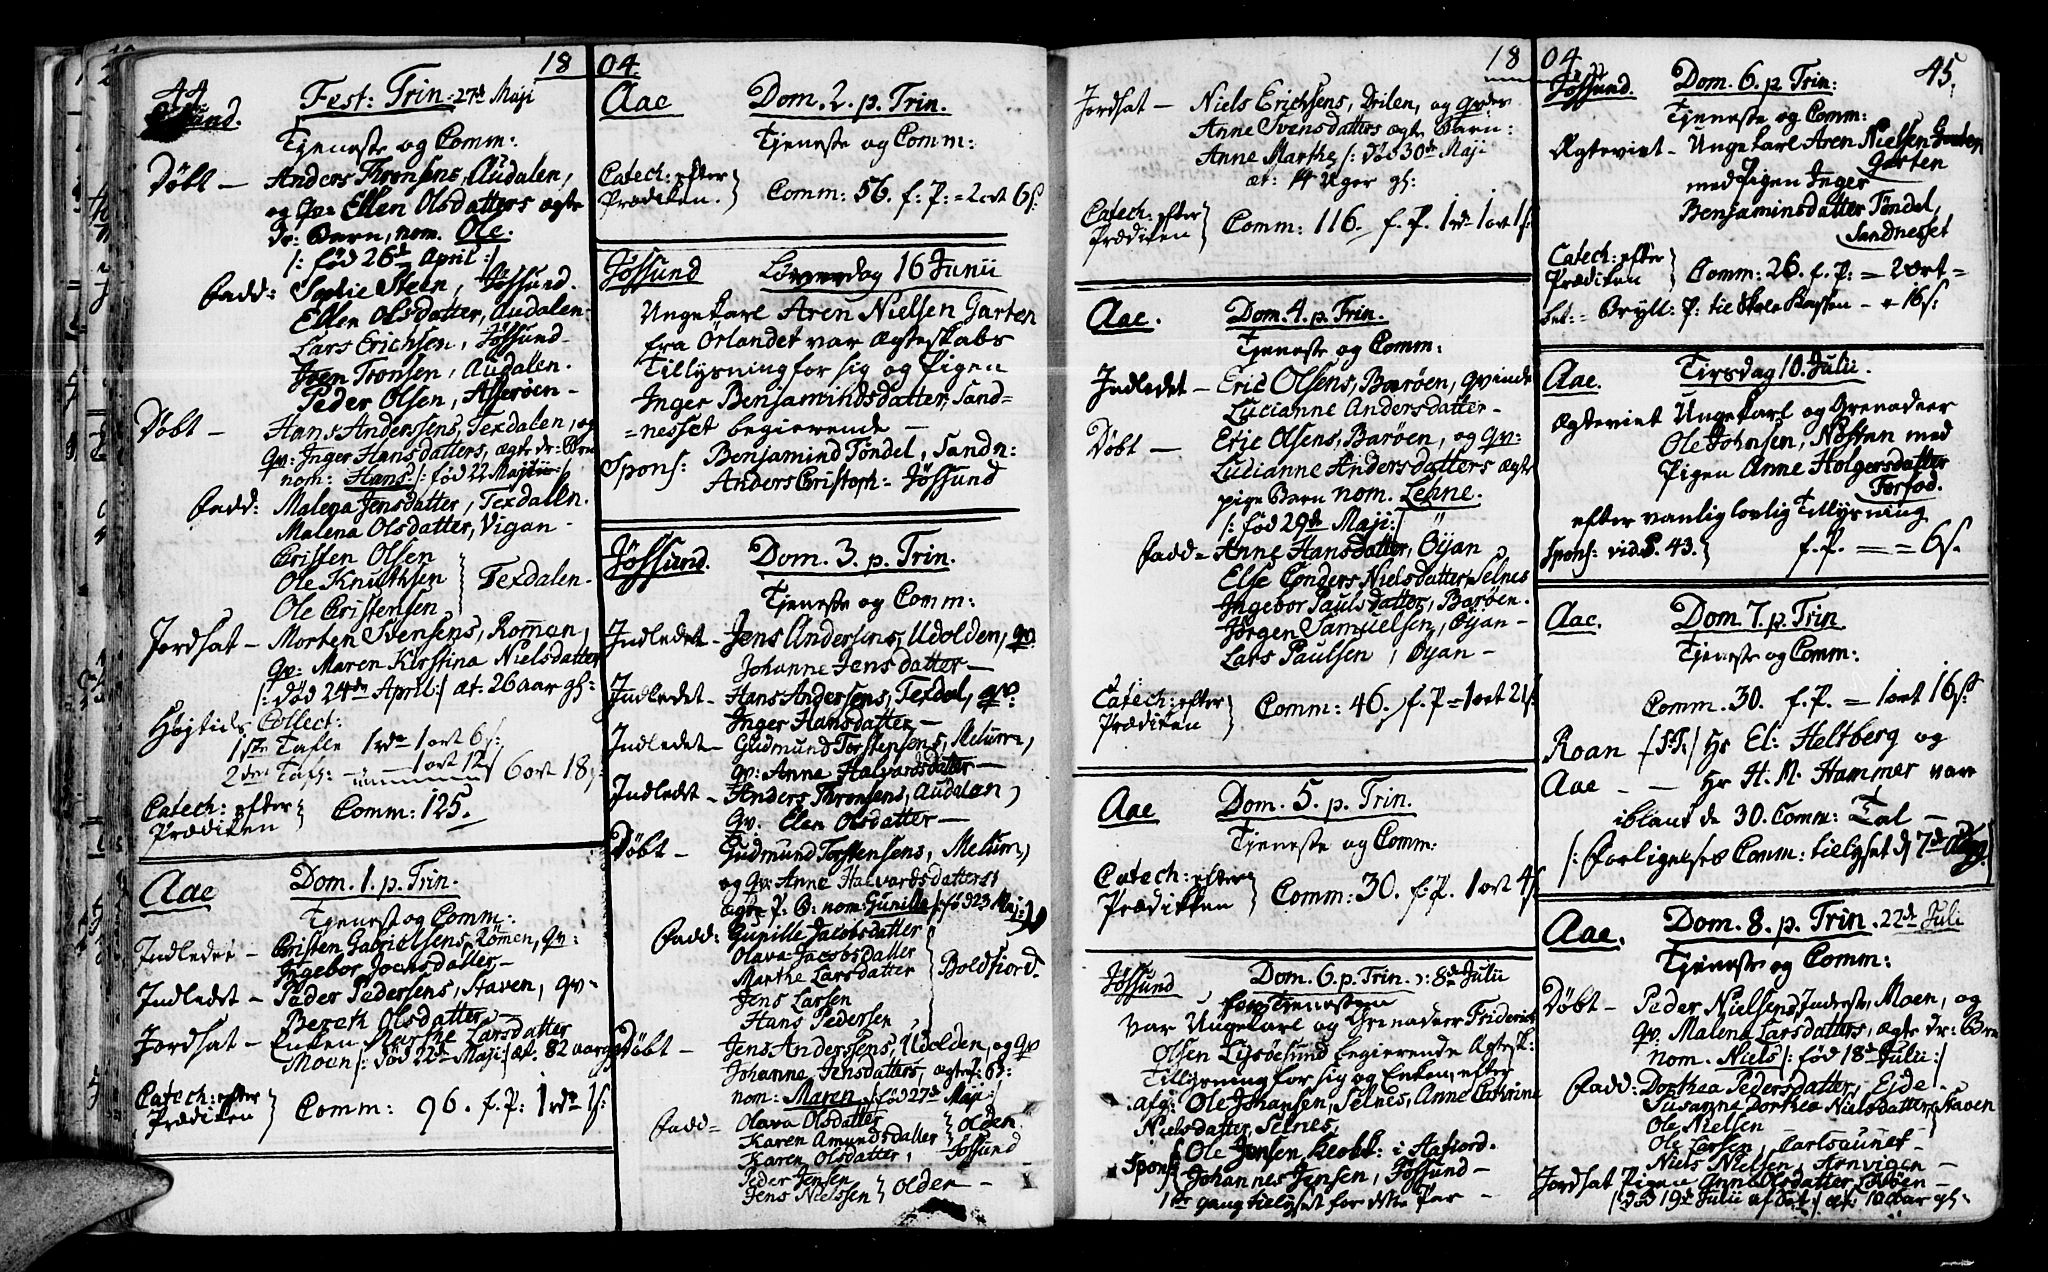 44
18 04.
Jøssund. Fest: Trin: 27de Maji
Tjeneste og Comm:
Døbt — Anders Thronsens, Audalen,
og Qv: Ellen Olsdatters ægte
dr: Barn, nom. Ole.
/: fød 26de April :/
Fadd: Sophie Steen, Jøssund.
Ellen Olsdatter, Audalen-
Lars Erichsen, Jøssund-
Iver Tronsen, Audalen.
Peder Olsen, Asserøen-
Døbt — Hans Anderssens, Texdalen, og
Qv: Inger Hansdatters, ægte dr: Barn
nom: Hans /: fød 22 Maji :/
Fadd: Malena Jensdatter, Texdalen.
Malena Olsdatter, Vigan-
Cristen Olsen
Ole Knuthsen } Texdalen.
Ole Cristensen
Jordsat — Morten Svensens, Roman,
Qv: Maren Kirstina Nielsdatter
/: død 24de April :/ æt: 26 aar gl:
Højtids Collect:
1ste Tafle 1 rdr 1 ort 6 s:
2den Tafl: — 1 ort 12 s 6 ort 18 s:
Catech: efter
Prædiken } Comm: 125.
Aae Dom. 1. p. Trin.
Tjeneste og Comm:
Indledet — Cristen Gabrielsens, Römen, Qv:
Ingebor Joensdatter —
Indledet — Peder Pedersens, Staven, Qv-
Bereth Olsdatter —
Jordsat — Enken Marthe Larsdatter
Moen /: død 22de Maji :/ æt. 82 aar gl:
Catech: efter
Prædiken } Comm: 96. f. P: 1 rdr 1 s:
Aae Dom. 2. p. Trin.
Tjeneste og Comm:
Catech: efter
Prædiken. } Comm: 56. f: P: = 2 ort 6 s:
Jøssund Løverdag 16 Junii
Ungekarl Aren Nielsen Garten
fra Ørlandet var Ægteskabs
Tillysning for sig og Pigen
Inger Benjamindsdatter, Sand=
=nesset begierende —
Spons: Benjamind Tøndel, Sandn:
Anders Christoph: Jøssund
Jøssund. Dom. 3. p. Trin.
Tjeneste og Comm:
Indledet — Jens Andersens, Udolden, qv:
Johanne Jensdatter —
Indledet — Hans Andersens, Texdal, qv:
Inger Hansdatter —
Indledet — Gudmund Torstensens, Melum,
qv: Anne Halvardsdatter —
Indledet — Anders Thronsens, Audalan,
Qv: Elen Olsdatter —
Døbt — Gudmund Torstensens, Melum,
og Qv: Anne Halvardsdatters
ægte P: B: nom: Gunille /: fød 23 Maj :/
Fadd: Gunille Jacobsdatter
Olava Jacobsdatter
Marthe Larsdatter } Boldfiord.
Jens Larsen
Hans Pedersen
Døbt — Jens Anderssens, Udolden, og Qv
Johanne Jensdatters, ægte P: B:
nom: Maren /: fød 27de Maji :/
Fadd = Olava Olsdatter
Karen Amundsdatter } Olden.
Karen Olsdatter, Jøssund
Peder Jensen
Jens Nielssen } Olden —
18 04
45.
Jordsat — Niels Erichsens, Drilen, og Qvdes
Anne Svensdatters ægte Barn:
Anne Marthe /: død 30de Maji
æt: 14 Uger gl:
Catech: efter
Prædiken } Comm: 116. f. P. 1 rdr 1 ort 1 s:
Aae. Dom. 4. p. Trin.
Tjeneste og Comm:
Indledet — Eric Olsens, Barøen, Qvinde
Lucianne Andersdatter —
Døbt — Eric Olsens, Barøen, og Qv:
Lucianne Andersdatters ægte
pige Barn nom. Lehne.
/: fød 29de Maji :/
Fadd = Anne Hansdatter, Øyan
Else Enders Nielsdatter, Selnes
Ingebor Paulsdatter, Barøen.
Jørgen Samuelsen, Øyan —
Lars Paulsen, Øyan —
Catech: efter
Prædiken } Comm: 46. f. P = 1 ort 21 s:
Aae Dom. 5. p. Trin.
Tjeneste og Comm:
Catech: efter
Prædikken } Comm: 30. f. P. 1 ort 4 s.
Jøssund Dom. 6. p. Trin. ɔ: 8de Julii
for Tjenesten
Var Ungekarl og Grenadeer Friderich
Olsen Lysøesund begierende Ægtesk:
Tillysning for sig og Enken, efter
afg: Ole Johansen, Selnes, Anne Cathrine
Nielsdatter, Selnes,
Spons { Ole Jensen : i Aafiord.
Johannes Jensen, Jøssund —
1ste gang tillyset for dette Par —
Jøssund. Dom. 6. p. Trin:
Tjeneste og Comm:
Ægteviet — Ungekarl Aren Nielsen
Garten
med Pigen Inger
Benjaminsdatter Tøndel,
Sandnesset
Catech: efter
Prædiken } Comm: 26. f. P: = 2 ort =
bet: = Bryll: P: til Skole Kassen — " 16 s:
Aae. Tirsdag 10. Julii.
Ægteviet Ungekarl og Grenadeer
Ole Johnsen, Nesten med
Pigen Anne Holgersdatter
Forfod.
efter vanlig lovlig Tillysning
Spons: vid. P. 43. } f. P. = = 6 s.
Aae. Dom 7. p. Trin.
Tjeneste og Comm:
Comm. 30. f. P. = 1 ort 16 s:
Roan /S: T:/ Hr El: Heltberg og
Aae — — Hr H. M. Hammer vare
iblant de 30. Comm: Tal —
/: Forligelses Comm: tillyset d 7de Aug
Aae. Dom. 8. p. Trin. 22de Juli
Tjeneste og Comm:
Døbt — Peder Nielsens Inderste, Moen, og
Qv: Malena Larsdatters, ægte dr: Brn
nom. Niels /: fød 18de Julii :/
Fadd: Dorthea Pedersdatter, Eide —
Susanne Dorthea Nielsdatter, Staven
Ole Nielsen
Ole Larsen, Carlsaunet —
Niels Nielsen, Arnvigen —
Jordsat Pigen Anne Olsdatter,
/: død 19de Julii af :/ æt: 10 aar gl: